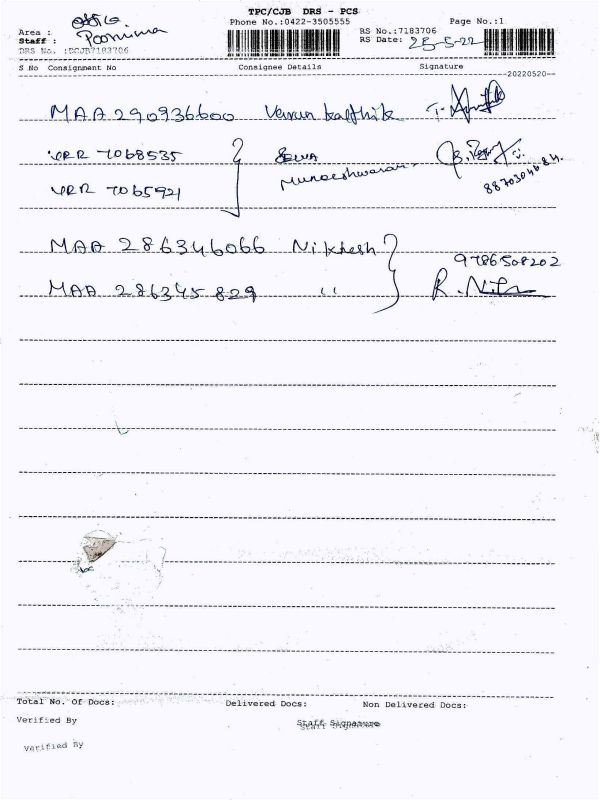 TPC/CJB DRS - PCS
Phone No.:0422-3505555 Page No.:1
Area :
Staff : Poornima
DRS No. :DCJB7183706
RS No.:7183706
RS Date: 25-5-22
S No Consignment No Consignee Details Signature
20220520
MAA 290936600 Varun karthik
7068535
Muneeshwaran
7065921 8870304684
MAA 286346066 Nikhesh 9786508202
MAA 286345829 ''
Total No. Of Docs: Delivered Docs: Non Delivered Docs:
Verified By Staff Signature
Verified By